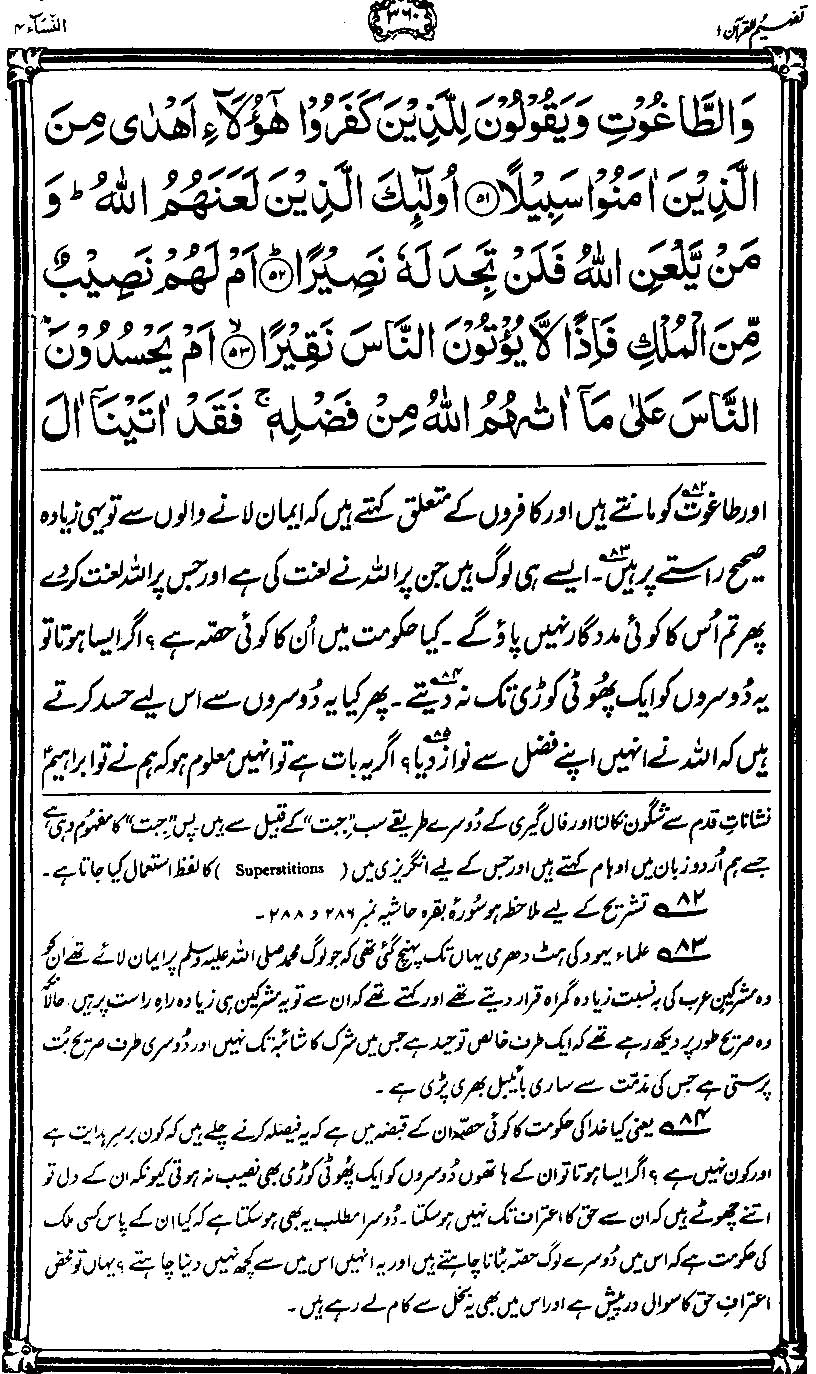 تفہیم القرآن ۱
۳۶۰
النساء ۴
وَالطَّاغُوْتِ وَيَقُوْلُوْنَ لِلَّذِيْنَ كَفَرُوْا هٰٓؤُلَآءِ اَهْدٰى مِنَ
الَّذِيْنَ اٰمَنُوْا سَبِيْلًا ۵۱ اُولٰٓئِكَ الَّذِيْنَ لَعَنَهُمُ اللّٰهُ ؕ وَ
مَنْ يَّلْعَنِ اللّٰهُ فَلَنْ تَجِدَ لَهٗ نَصِيْرًا ؕ ۵۲ اَمْ لَهُمْ نَصِيْبٌ
مِّنَ الْمُلْكِ فَاِذًا لَّا يُؤْتُوْنَ النَّاسَ نَقِيْرًا ۙ ۵۳ اَمْ يَحْسُدُوْنَ
النَّاسَ عَلٰى مَآ اٰتٰىهُمُ اللّٰهُ مِنْ فَضْلِهٖ ۚ فَقَدْ اٰتَيْنَآ اٰلَ
اور طاغوت ۸۲ کو مانتے ہیں اور کافروں کے متعلق کہتے ہیں کہ ایمان لانے والوں سے تو یہی زیادہ
صحیح راستے پر ہیں ۸۳۔ ایسے ہی لوگ ہیں جن پر اللہ نے لعنت کی ہے اور جس پر اللہ لعنت کر دے
پھر تم اُس کا کوئی مددگار نہیں پاؤ گے۔ کیا حکومت میں اُن کا کوئی حصّہ ہے؟ اگر ایسا ہوتا تو
یہ دُوسروں کو ایک پھُوٹی کوڑی تک نہ دیتے ۸۴۔ پھر کیا یہ دُوسروں سے اس لیے حسد کرتے
ہیں کہ اللہ نے انہیں اپنے فضل سے نواز دیا ۸۵؟ اگر یہ بات ہے تو انہیں معلوم ہو کہ ہم نے تو ابراہیمؑ
نشاناتِ قدم سے شگون نکالنا اور فال گیری کے دُوسرے طریقے سب ”جِبت“ کے قبیل سے ہیں پس ”جِبت“ کا مفہُوم وہی ہے
جسے ہم اُردو زبان میں اوہام کہتے ہیں اور جس کے لیے انگریزی میں (Superstitions) کا لفظ استعمال کیا جاتا ہے۔
۸۲؎ تشریح کے لیے ملاحظہ ہو سُورۂ بقرہ حاشیہ نمبر ۲۸۶ و ۲۸۸۔
۸۳؎ علماء یہود کی ہٹ دھرمی یہاں تک پہنچ گئی تھی کہ جو لوگ محمد صلی اللہ علیہ وسلم پر ایمان لائے تھے ان کو
وہ مشرکینِ عرب کی بہ نسبت زیادہ گمراہ قرار دیتے تھے اور کہتے تھے کہ ان سے تو یہ مشرکین ہی زیادہ راہِ راست پر ہیں، حالانکہ
وہ صریح طور پر دیکھ رہے تھے کہ ایک طرف خالص توحید ہے جس میں شرک کا شائبہ تک نہیں اور دُوسری طرف صریح بُت
پرستی ہے جس کی مذمّت سے ساری بائیبل بھری پڑی ہے۔
۸۴؎ یعنی کیا خدا کی حکومت کا کوئی حصّہ ان کے قبضہ میں ہے کہ یہ فیصلہ کرنے چلے ہیں کہ کون برسرِ ہدایت ہے
اور کون نہیں ہے؟ اگر ایسا ہوتا تو ان کے ہاتھوں دُوسروں کو ایک پھُوٹی کوڑی بھی نصیب نہ ہوتی کیونکہ ان کے دل تو
اتنے چھوٹے ہیں کہ ان سے حق کا اعتراف تک نہیں ہو سکتا۔ دُوسرا مطلب یہ بھی ہو سکتا ہے کہ کیا ان کے پاس کسی ملک
کی حکومت ہے کہ اس میں دُوسرے لوگ حصّہ بٹانا چاہتے ہیں اور یہ انہیں اس میں سے کچھ نہیں دینا چاہتے؟ یہاں تو محض
اعترافِ حق کا سوال درپیش ہے اور اس میں بھی یہ بخل سے کام لے رہے ہیں۔